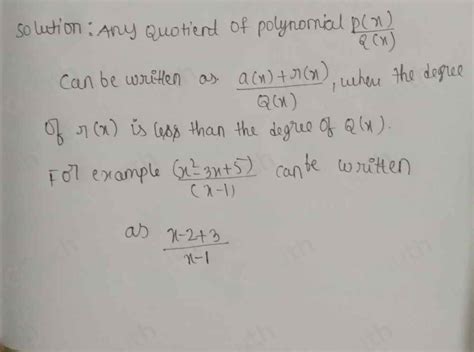 Solution: Any Quotient of polynomial P(x)/Q(x)
Can be written as a(x)+r(x)/Q(x), when the degree
Of r(x) is less than the degree of Q(x).
For example (x²-3x+5)/(x-1) can be written
as x-2+3/x-1